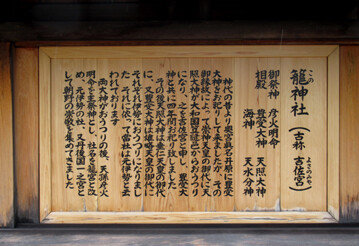 籠神社(古称 吉佐宮)
このじんじゃ
よさのみや
御祭神 彦火明命
相殿 豊受大神 天照大神
海神 天水分神
神代の昔より奥宮眞名井原に豊受
大神をお祀りして来ましたが、その
御縁故によって崇神天皇の御代に天
照大神が大和国笠縫邑からおうつり
になり、之を吉佐宮と申し、豊受大
神と共に四年間お祀り致しました
その後天照大神は垂仁天皇の御代
に、又豊受大神は雄略天皇の御代に
それぞれ伊勢におうつりになりまし
た。それに依って当社は元伊勢と云
われております
両大神がおうつりの後、天孫彦火
明命を主祭神とし、社名を籠宮と改
め、元伊勢の社、又丹後国一之宮と
して朝野の崇敬を集めてきました